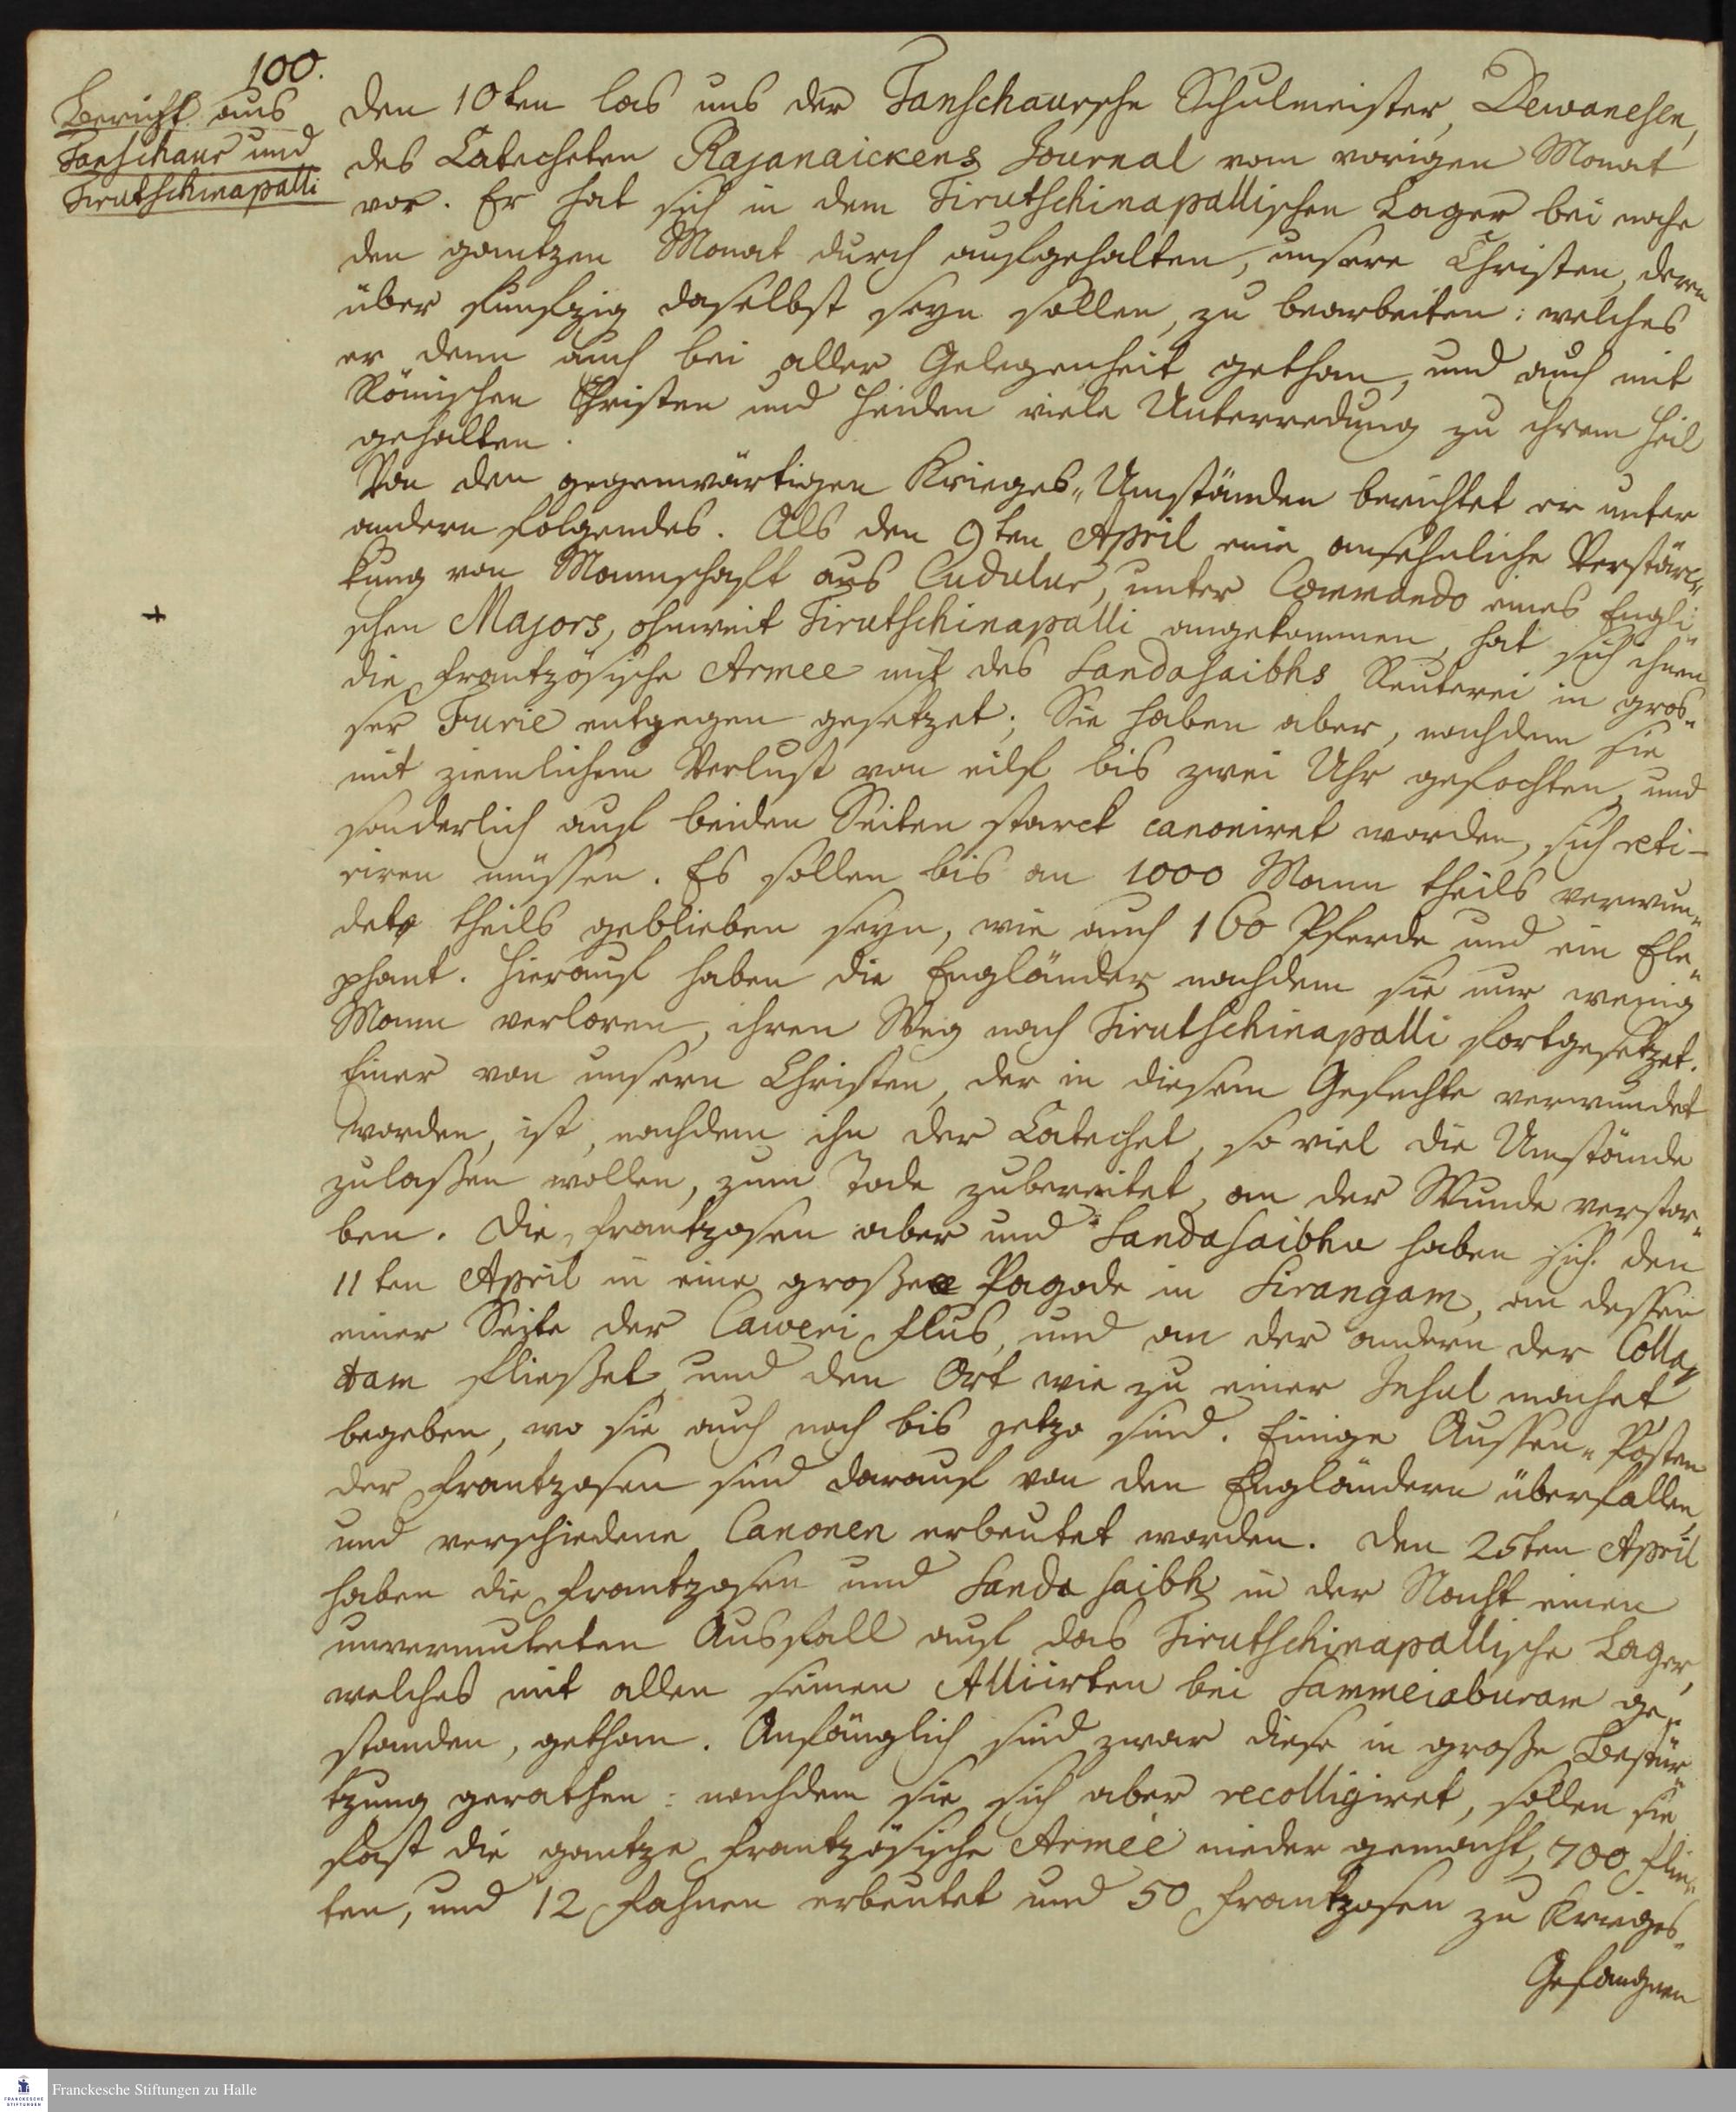 100.
Bericht aus
Tanschaur und
Tirutschinapalli
Den 10ten las uns der Tanschaursche Schulmeister, Dewanesen,
des Catecheten Rajanaickens Journal vom vorigen Monat
vor. Er hat sich in dem Tirutschinapallischen Lager bei nahe
den gantzen Monat durch aufgehalten, unsere Christen, deren
über funfzig daselbst seyn sollen, zu bearbeiten: welches
er denn auch bei aller Gelegenheit gethan, und auch mit
Römischen Christen und Heiden viele Unterredung zu ihrem Heil
gehalten.
Von den gegenwärtigen Krieges-Umständen berichtet er unter
andern folgendes. Als den 9ten April eine ansehnliche Verstär-
kung von Mannschaft aus Cudulur, unter Commando eines Engli-
schen Majors, ohnweit Tirutschinapalli angekommen, hat sich ihnen
die Frantzösische Armee mit des Sandasaibhs Reuterei in gros-
ser Furie entgegen gesetzet; Sie haben aber, nachdem sie
mit ziemlichem Verlust von eilf bis zwei Uhr gefochten, und
sonderlich auf beiden Seiten starck canoniret worden, sich reti-
riren müssen. Es sollen bis an 1000 Mann theils verwun-
det, theils geblieben seyn, wie auch 160 Pferde und ein Ele-
phant. Hierauf haben die Engländer nachdem sie nur wenig
Mann verloren, ihren Weg nach Tirutschinapalli fortgesetzet.
Einer von unsern Christen, der in diesem Gefechte verwundet
worden, ist, nachdem ihn der Catechet, so viel die Umstände
zulassen wollen, zum Tode zubereitet, an der Wunde verstor-
ben. Die Frantzosen aber und Sandasaibhu haben sich den
11ten April in eine große Pagode in Sirangam, an dessen
einer Seite der Caweri Flus, und an der andern der Colla-
dam fließet und den Ort wie zu einer Insul machet
begeben, wo sie auch noch bis jetzo sind. Einige Aussen-Posten
der Frantzosen sind darauf von den Engländern überfallen,
und verschiedene Canonen erbeutet worden. Den 25ten April
haben die Frantzosen und Sanda saibh in der Nacht einen
unvermuteten Ausfall auf das Tirutschinapallische Lager,
welches mit allen seinen Alliirten bei Sammeiaburam ge-
standen, gethan. Anfänglich sind zwar diese in große Bestür-
tzung gerathen: nachdem sie sich aber recolligiret, sollen sie
fast die gantze Frantzösische Armée nieder gemacht, 700 Flin-
ten, und 12 Fahnen erbeutet und 50 Frantzosen zu Krieges-
Gefangnen
FRANCKESCHE
STIFTUNGEN
Franckesche Stiftungen zu Halle